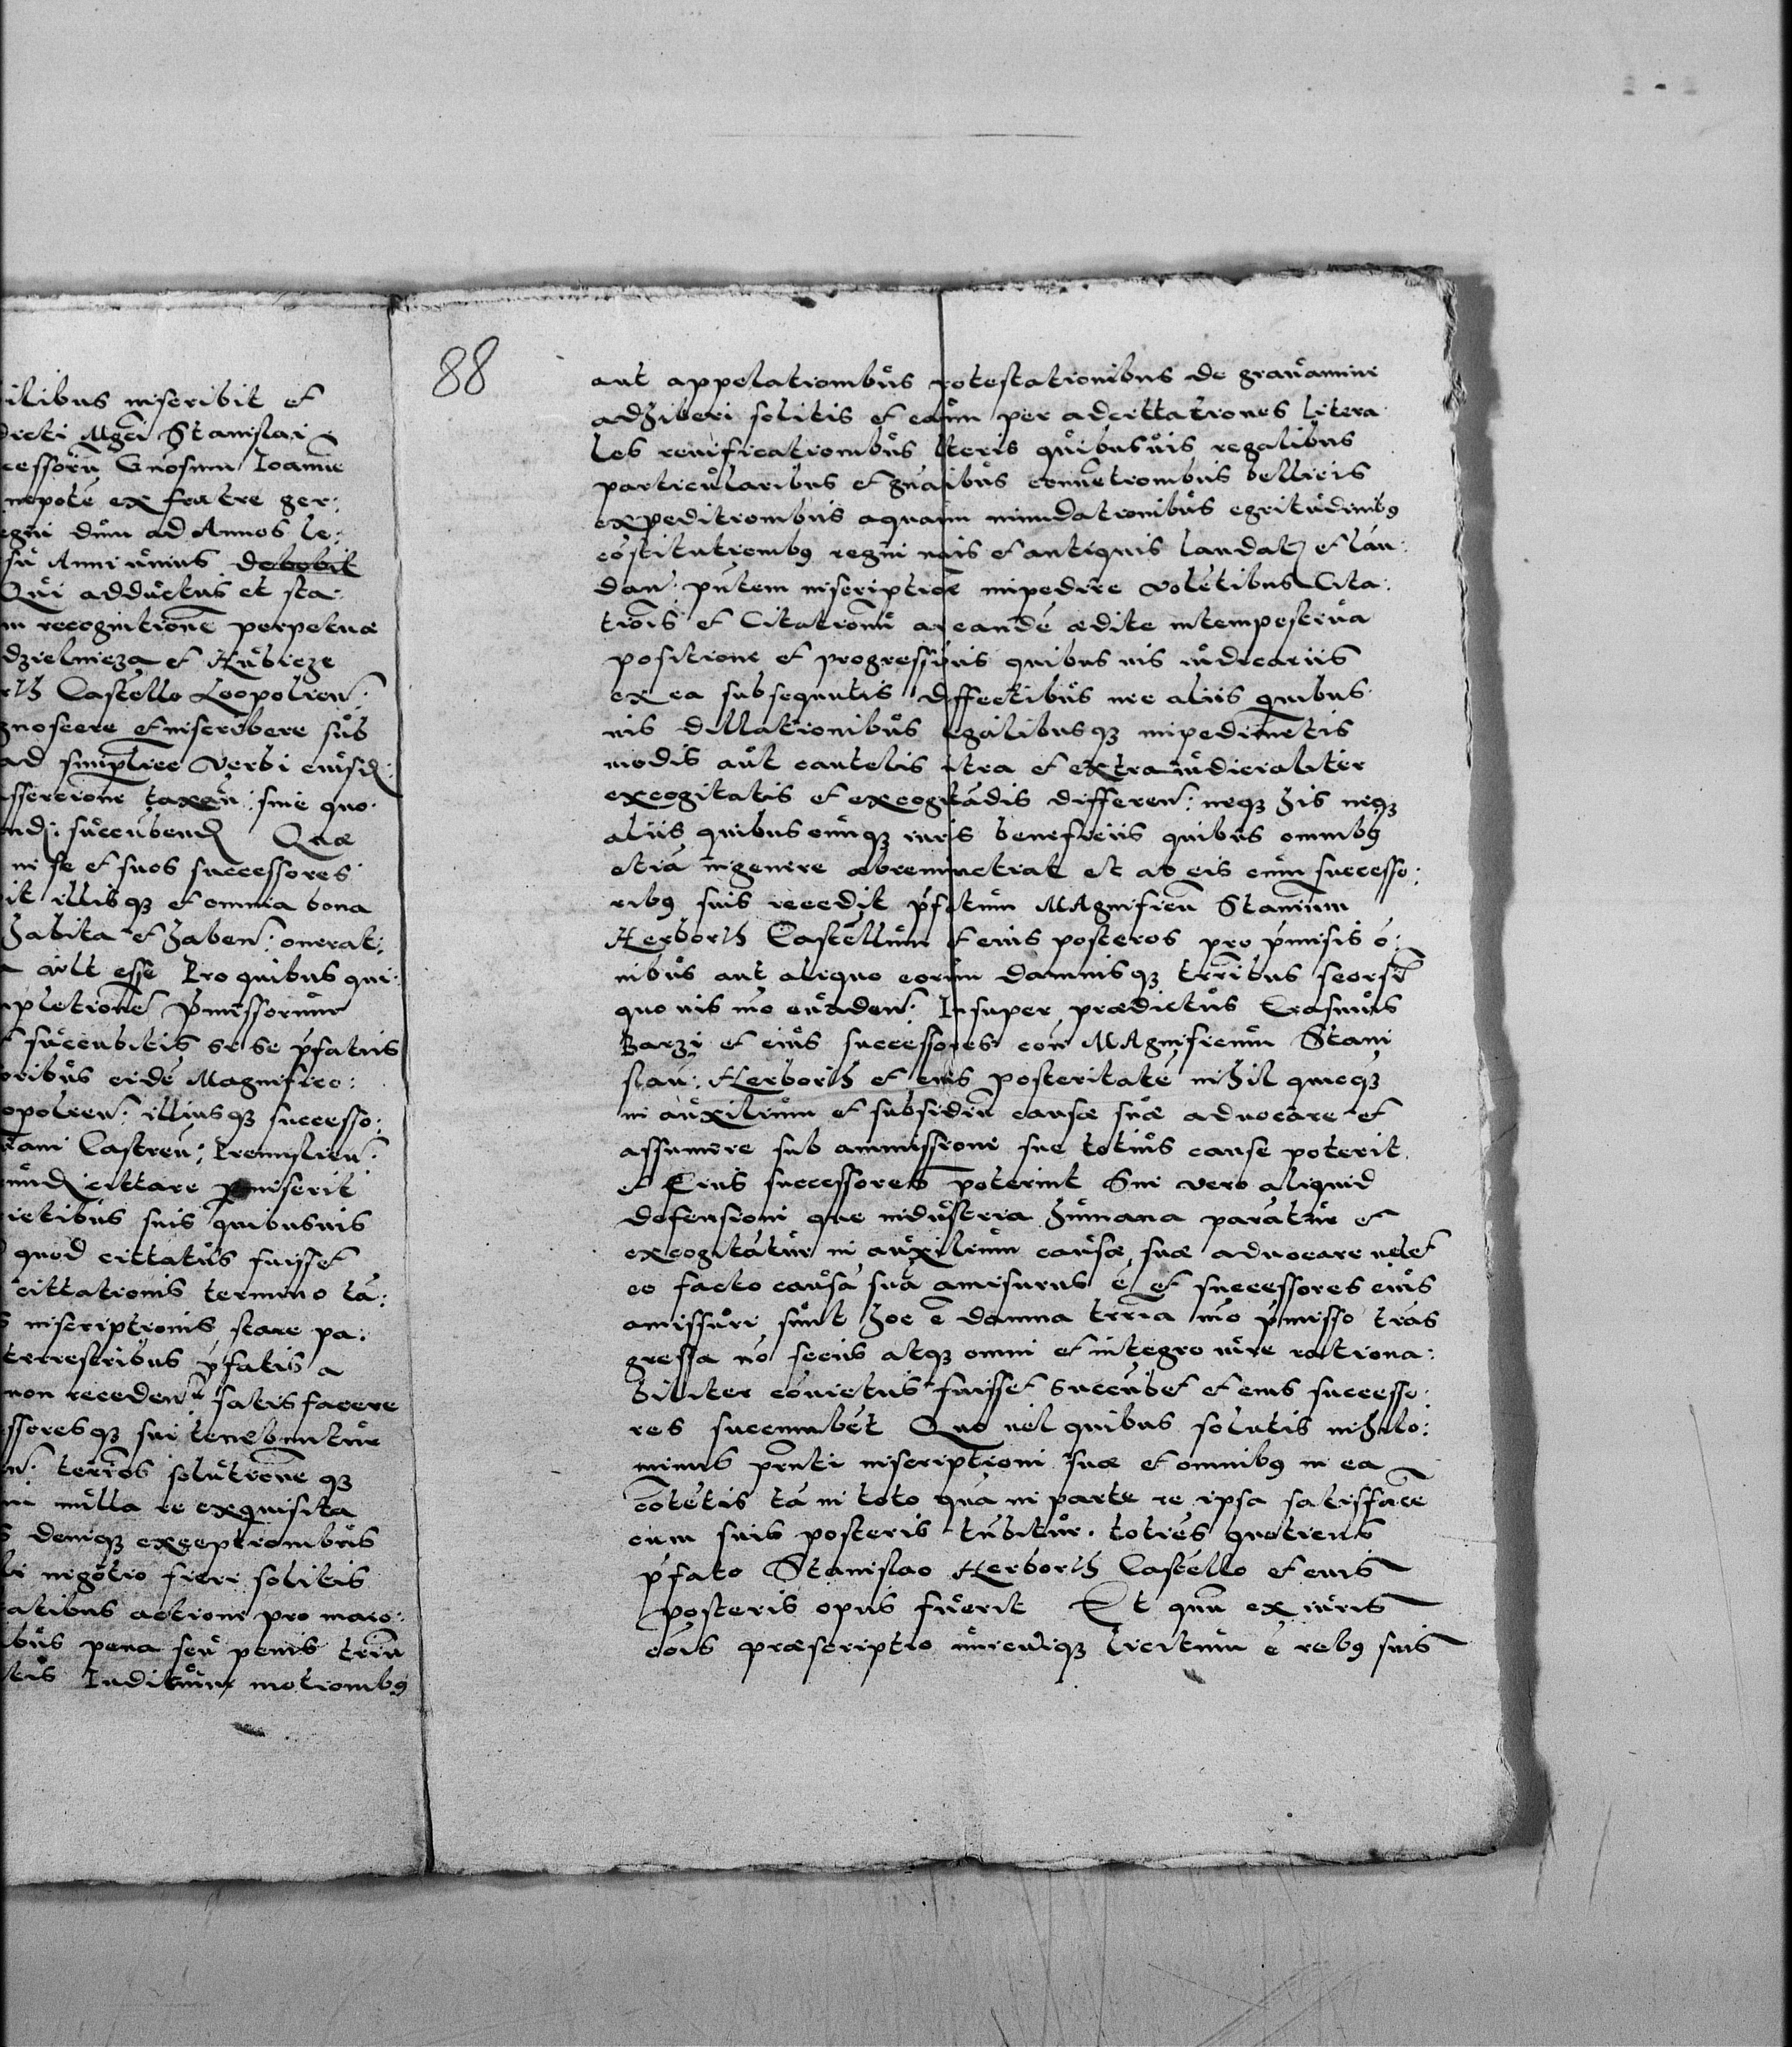 ilibus inscribit et
dicti Mgci Stanislai
cessorū Gnosum Ioanne
nepotē ex fratre ger:
egni dnm ad Annos le:
su Anni unius debebit
Qui adductus et sta:
m recognitione perpetuæ
dzielnicza et Rubicze
rth Castello Leopolien:
gnoscere et inscribere sub
ad simplice verbi eiusd:
ssercione taxan: sine quo
nd: succubend Quæ
in se et suos successores
it illisq; et omnia bona
habita et haben: onerat:
vult esse Pro quibus qui
pletione pmissorum
succubitis se se pfatus
oribus eidē Magnifico:
opolien: illiusq; successo:
Castren: Premislien:
und cittare pmiserit
ietibus suis quibusuis
quod cittatus fuisset
cittationis termino tā:
s inscriptionis stare pa:
terrestribus pfatis a
non receden: satisfacere
ssoresq; sui tenebuntur
n: terrios solutione q;
nulla re exquisita
s deniq; exceptionibus
li negotio fieri solitis
atibus actione pro maio:
ibus pena seu penis trin
Inditum motionib9
88
aut appelationibus rotestationibus de grauamine
adhiberi solitis et earum per adcittationes litera
les reuificationibus lteris quibusuis regalibus
particularibus et gnalibus conuētionibus bellicis
expeditionibus aquarum inundationibus egritudinib9
cōstitutionib9 regni nouis et antiquis laudat et lau:
dan: pntem inscriptione impedire volētibus Cita:
tiois et Citationū a eandē ædite intempestiua
positione et progressiuis quibus uis iudicariis
ex ea subsequutis Deffectibus nec aliis quibus
uis dillationibus egalibusq; impedimētis
modis aut cautelis itra et extraiudicialiter
excogitatis et excogitādis differen: neq; his neq;
aliis quibuscunq; iuris beneficiis quibus omnib9
etiā ingenere abrenunctiat et ab eis cum successo:
rib9 suis recedit pfatum MAgnificū Stanium
Herborth Castellum et eius posteros pro pmisis ō:
nibus aut aliquo eorum damnisq; trribus seorsī
quo uis mo euaden: Insuper prædictus Erasmus
Barzi et eius successores con MAgnificum Stani
slau: Herborth et eius posteritatē nihil queq;
in auxilium et subsidiū causæ suæ aduocare et
assumere sub ammissione sue totius cause poterit
et Eius successores poterint Sin vero aliquid
defensioni que industria humana paratur et
excogitatur in auxilium causæ suæ aduocare uelet
eo facto causā suā amisurus ē et successores eius
amissuri sunt hoc ē damna trria mo pmisso trās
gressa nō secus atq; omni et integro iure rationa:
biliter cōuictus fuisset succubet et eius successo:
res succumbēt Quo uel quibus solutis nihilo:
minus prnti inscriptioni suæ et omnib9 in ea
cōtētis tā in toto quā in parte re ipsa satisfacē
cum suis posteris tnbitur. toties quotiens
pfato Stanislao Herborth Castello et eius
posteris opus fuerit Et qum ex iuris
cōis præscriptio unicuiq; licitum ē reb9 suis